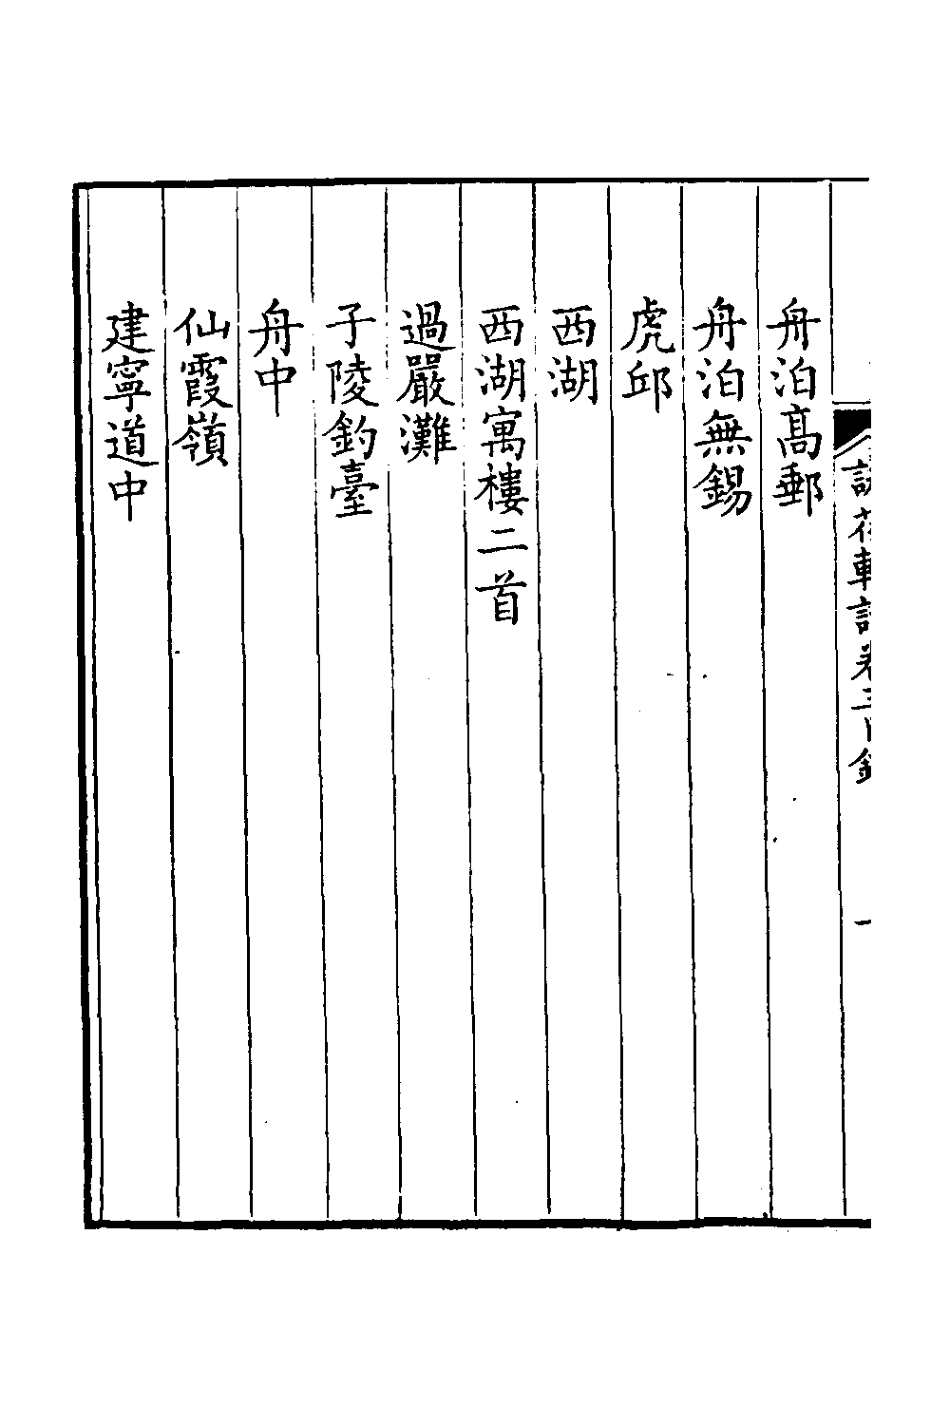 舟泊髙郵
舟泊無錫
虎邱
西湖
西湖寓樓二首
過嚴灘
子陵釣臺
舟中
仙霞嶺
建寧道中
花軒詩卷三目錄
一